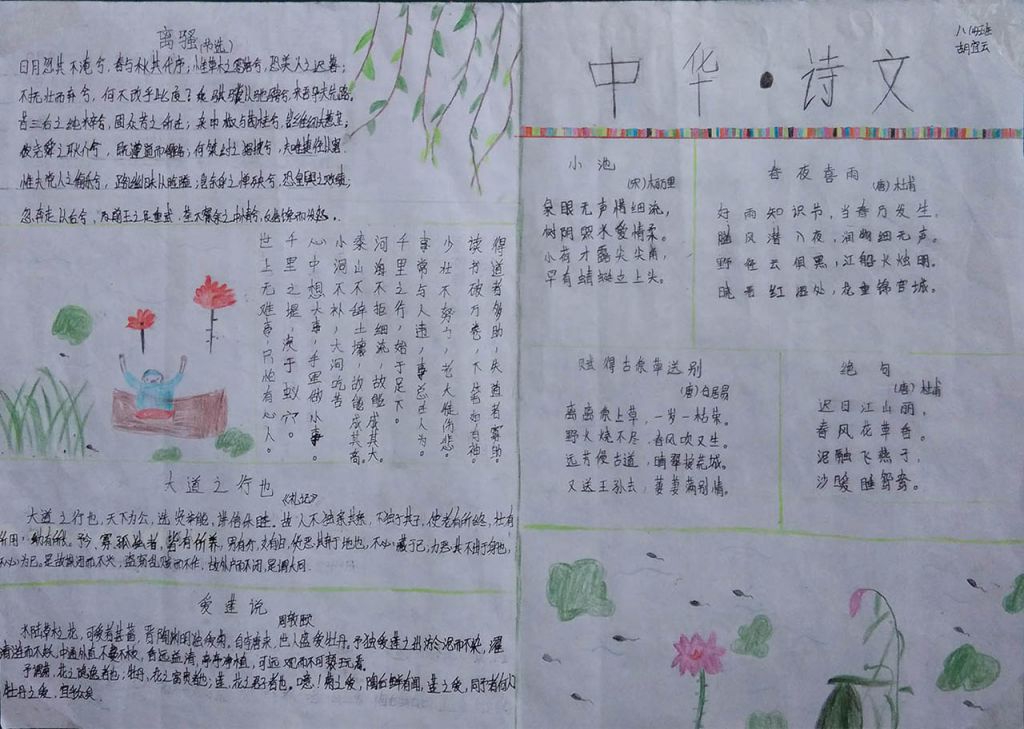 离骚(节选)
日月忽其不淹兮,春与秋其代序;惟草木之零落兮,恐美人之迟暮;
不抚壮而弃兮,何不改乎此度?乘骐骥以驰骋兮,来吾导夫先路。
昔三后之纯粹兮,固众芳之所在;杂申椒与菌桂兮,
彼尧舜之耿介兮,既遵道而得路;何桀纣之猖披兮,夫唯捷径以窘
惟夫党人之偷乐兮,路幽昧以险隘;岂余身之惮殃兮,恐皇舆之败绩;
忽奔走以先后兮,及前王之踵武;荃不察余之中情兮,反信谗而齌怒。
得道者多助,失道者寡助。
读书破万卷,下笔如有神
少壮不努力,老大徒伤悲
事常与人违,事总在人为。
千里之行,始于足下。
河海不拒细流,故能成其大。
泰山不辞土壤,故能成其高。
小洞不补,大洞吃苦
心中想大事,手里做小事。
千里之堤,溃于蚁穴。
世上无难事,只怕有心人。
大道之行也
《礼记》
大道之行也,天下为公,选贤举能,讲信修睦。故人不独亲其亲,不独子其子,使老有所终,壮有
所用,幼有所长,矜、寡孤独者,皆有所养,男有分,女有归,货恶其弃于地也,不必藏于己;力恶其不出于身也,
不必为己。是故谋闭而不兴,盗窃乱贼而不作,故外户而不闭,是谓大同.
爱莲说
周敦颐
水陆草木之花,可爱者甚蕃。晋陶渊明独爱菊。自李唐来,世人盛爱牡丹。予独爱莲之出淤泥而不染,濯
清涟而不妖,中通外直,不蔓不枝,香远益清,亭亭净植,可远观而不可亵玩焉。
予谓菊,花之隐逸者也;牡丹,花之富贵者也;莲,花之君子者也。噫!菊之爱,陶后鲜有闻,莲之爱,同予者何人
牡丹之爱,宜乎众矣
八(四)班
中华·诗文
小池
(宋)杨万里
泉眼无声惜细流,
树阴照水爱晴柔。
小荷才露尖尖角,
早有蜻蜓立上头。
春夜喜雨
(唐)杜甫
好雨知识节,当春乃发生。
随风潜入夜,润物细无声。
野径云俱黑,江船火烛明。
晓看红湿处,花重锦官城。
赋得古原草送别
(唐)白居易
离离原上草,一岁一枯荣。
野火烧不尽,春风吹又生。
远芳侵古道,晴翠接荒城。
又送王孙去,萋萋满别情。
绝句
(唐)杜甫
迟日江山丽,
春风花草香。
泥融飞燕子,
沙暖睡鸳鸯。